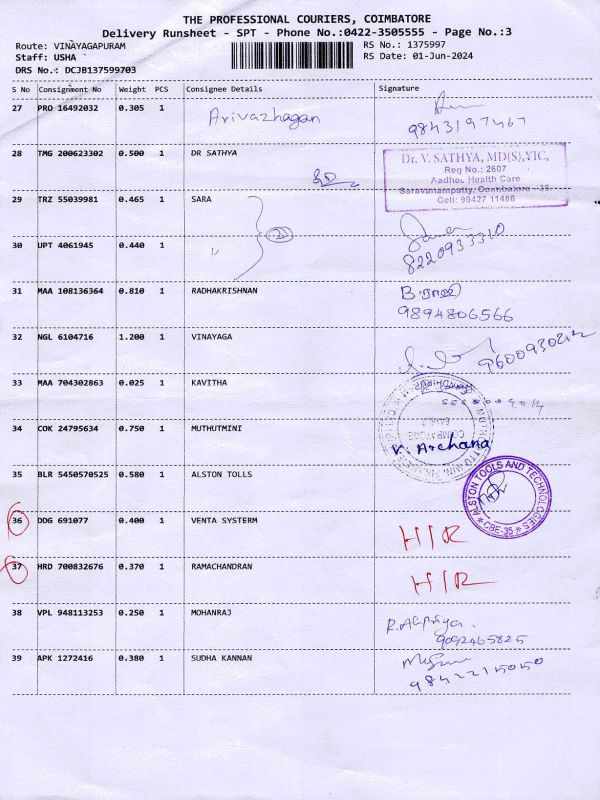 THE PROFESSIONAL COURIERS, COIMBATORE
Delivery Runsheet - SPT - Phone No.:0422-3505555 - Page No.:3
Route: VINAYAGAPURAM
Staff: USHA
DRS No.: DCJB137599703
RS No.: 1375997
RS Date: 01-Jun-2024
S No Consignment No Weight PCS Consignee Details Signature
27 PRO 16492032 0.305 1 Arivazhagan
9843197467
28 TMG 200623302 0.500 1 DR SATHYA
Dr. V. SATHYA, MD(S),YIC,
Reg No.: 2607
Aadhei Health Care
Saravanampatty, Coimbatore -35
Cell: 99427 11486
29 TRZ 55039981 0.465 1 SARA
2
30 UPT 4061945 0.440 1 "
8220933310
31 MAA 108136364 0.810 1 RADHAKRISHNAN
9894806566
32 NGL 6104716 1.200 1 VINAYAGA
33 MAA 704302863 0.025 1 KAVITHA
34 COK 24795634 0.750 1 MUTHUTMINI
V. Archana
35 BLR 5450570525 0.580 1 ALSTON TOLLS
ALSTON TOOLS AND TECHNOLOGIES
* CBE-35 *
36 DDG 691077 0.400 1 VENTA SYSTERM H/R
37 HRD 700832676 0.370 1 RAMACHANDRAN H/R
38 VPL 948113253 0.250 1 MOHANRAJ
9092465825
39 APK 1272416 0.380 1 SUDHA KANNAN
9842215050